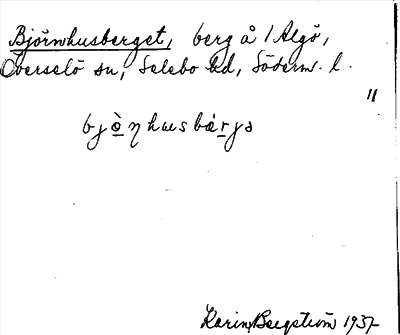 Björnhusberget, berg å / Algö,
Överselö sn, Selebo hd, Söderm. l.
"
bjö̀ηhusbærjə
Karin Bergström 1937